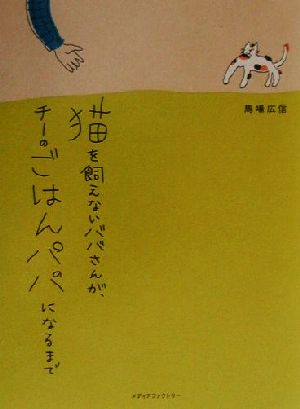 馬場広信
猫を飼えないパパさんが、
チーのごはんパパ
になるまで
メディアファクトリー